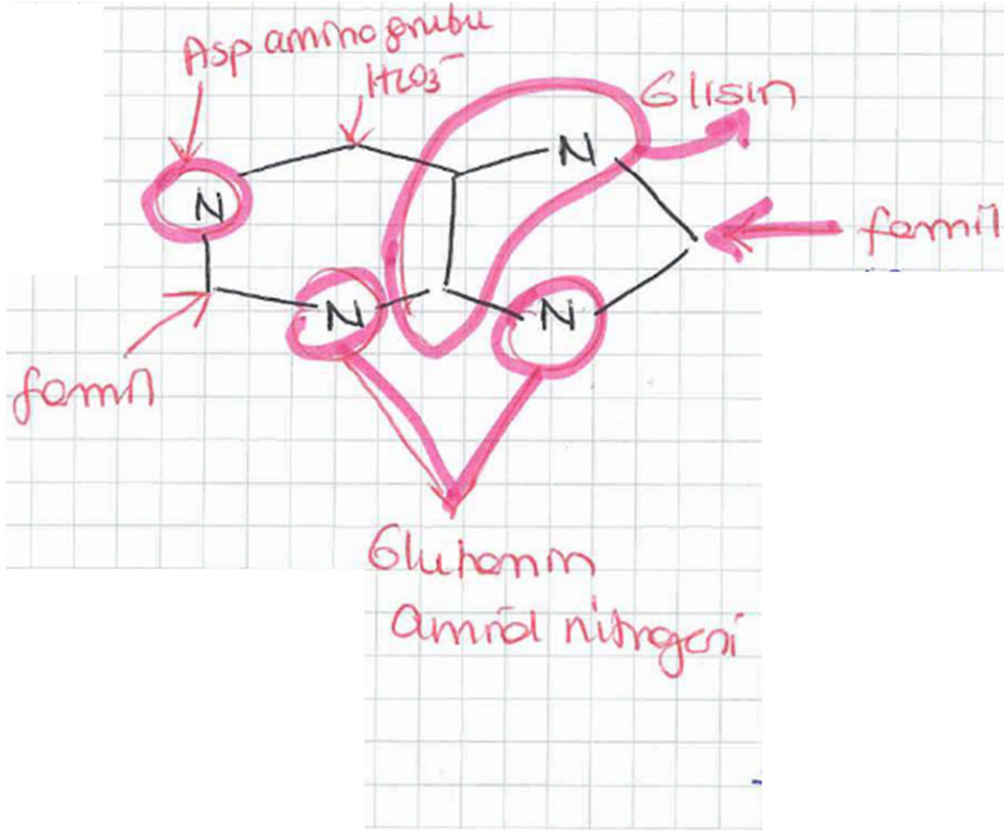 Asp amino grubu
HCO3⁻
Glisin
N
N
formil
N
N
formil
Glutamin
amid nitrogeni